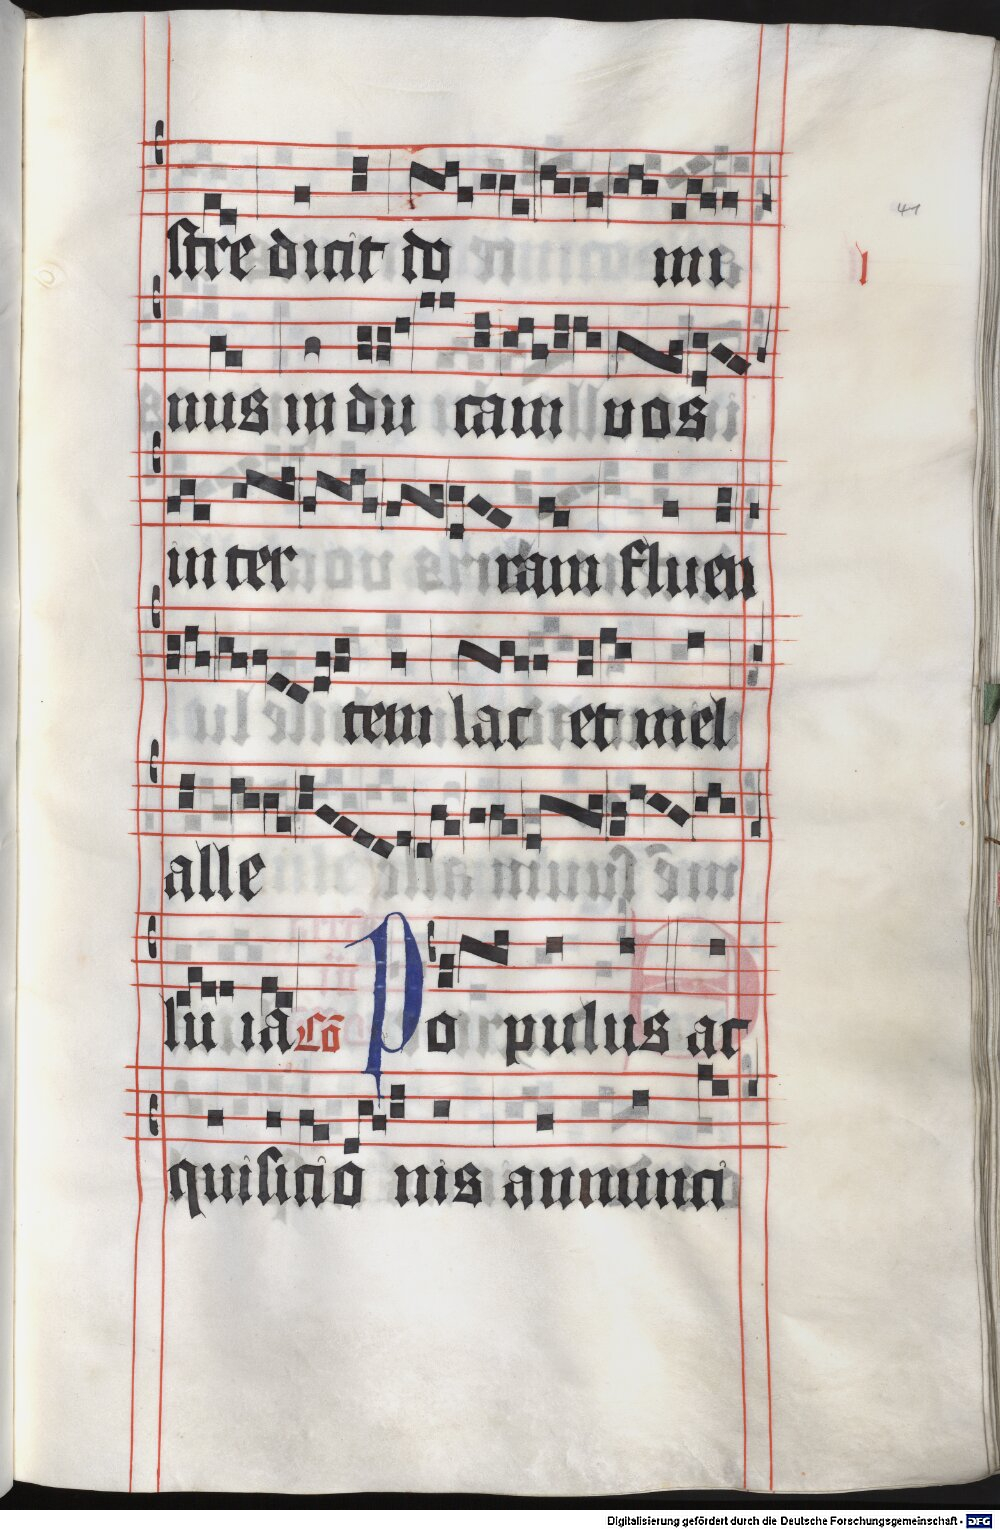 41
l
stre dicit do mi
nus in du cam vos
in ter ram fluen
tem lac et mel
alle
lu ia Cō Po pulus ac
quisicio nis annunci
Digitalisierung gefördert durch die Deutsche Forschungsgemeinschaft - DFG